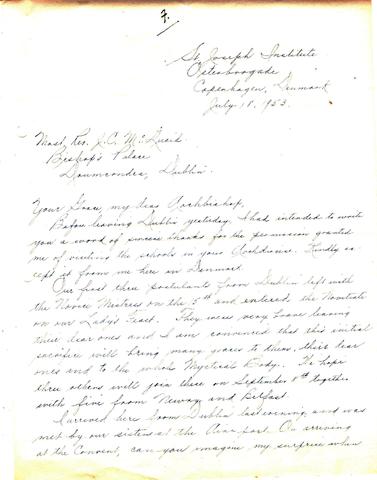 7.
St Joseph Institute
Osterbrogade
Copenhagen, Denmark
July 18, 1953.
Most Rev. J.C. McQuaid
Bishop's Palace
Drumcondra, Dublin.
Your Grace, my dear Archbishop,
Before leaving Dublin yesterday, I had intended to write
you a word of sincere thanks for the permission granted
me of visiting the schools in your Archdiocese. Kindly ac-
cept it from me here in Denmark.
Our first three postulants from Dublin left with
the Novice Mistress on the 5th and entered the Novitiate
on our Lady's Feast. They were very brave leaving
their dear ones and I am convinced that this initial
sacrifice will bring many graces to them, their dear
ones and to the whole Mystical Body. We hope
three others will join these on September 8th together
with five from Newry and Belfast.
I arrived here from Dublin last evening and was
met by our sisters at the Air port. On arriving
at the Convent, can you imagine my surprise when